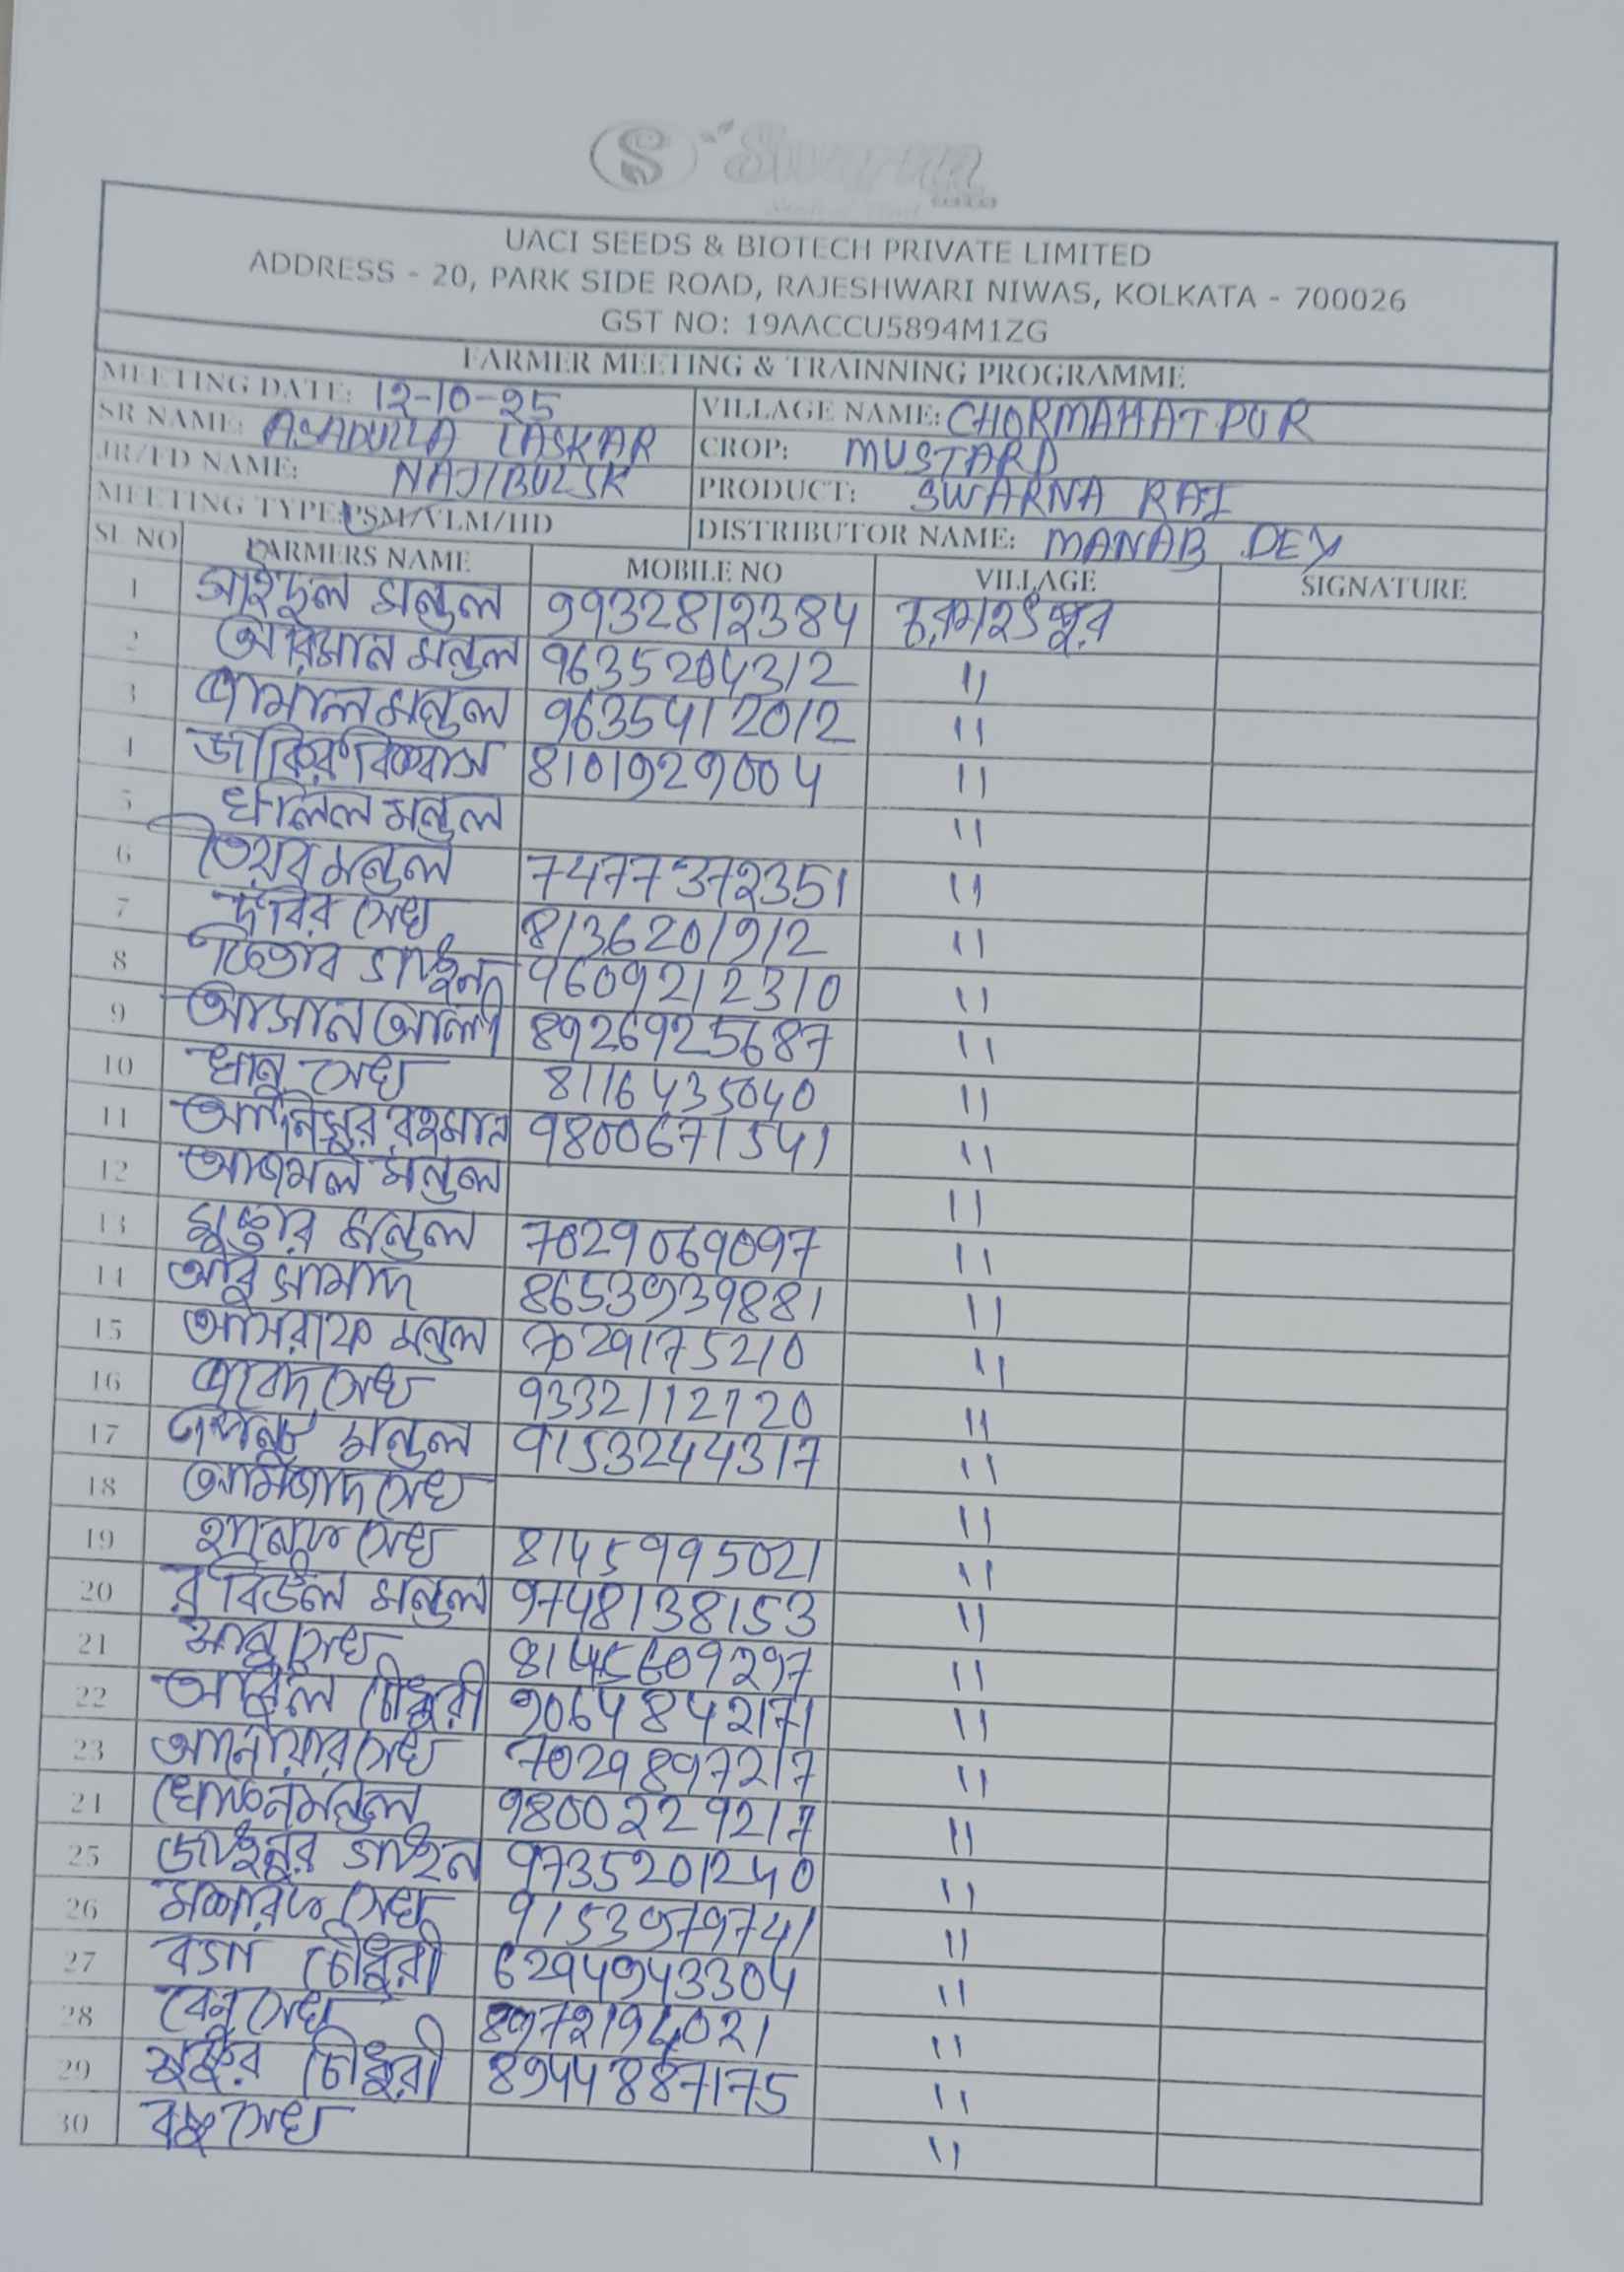 S Swarna
UACI SEEDS & BIOTECH PRIVATE LIMITED
ADDRESS - 20, PARK SIDE ROAD, RAJESHWARI NIWAS, KOLKATA - 700026
GST NO: 19AACCU5894M1ZG
FARMER MEETING & TRAINNING PROGRAMME
MEETING DATE: 12-10-25 VILLAGE NAME: CHORMAHATPUR
SR NAME: ASADULLA LASKAR CROP: MUSTARD
JR/FD NAME: NAJIBUL SK PRODUCT: SWARNA RAI
MEETING TYPE: PSM/VLM/HD DISTRIBUTOR NAME: MANAB DEY
SL NO FARMERS NAME MOBILE NO VILLAGE SIGNATURE
1 সাইদুল মন্ডল 9932812384
2 মন্ডল 9635204312 "
3 মন্ডল 9635412012 "
4 জাকির বিশ্বাস 8101929004 "
5 খলিল মন্ডল "
6 মন্ডল 7477372351 "
7 সেখ 8136201912 "
8 9609212310 "
9 আসান আলী 8926925687 "
10 খানু সেখ 8116435040 "
11 আনিসুর রহমান 9800671541 "
12 আজমল মন্ডল "
13 মুক্তার মন্ডল 7029069097 "
14 আবু সামাদ 8653939881 "
15 আসরাফ মন্ডল 7029175210 "
16 সেখ 9332112720 "
17 মন্ডল 9153244317 "
18 আমজাদ সেখ "
19 সেখ 8145995021 "
20 রবিউল মন্ডল 9748138153 "
21 সেখ 8145609297 "
22 চৌধুরী 9064842171 "
23 আনোয়ার সেখ 7029897217 "
24 মন্ডল 9800229217 "
25 9735201240 "
26 সেখ 9153979741 "
27 চৌধুরী 6294943304 "
28 সেখ "
29 চৌধুরী 8944887175 "
30 সেখ "